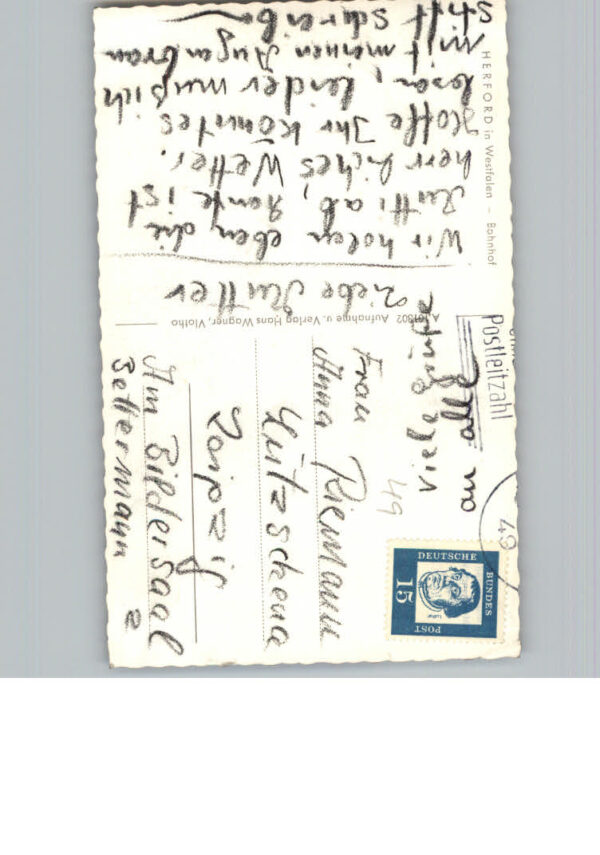 HERFORD in Westfalen – Bahnhof
Liebe Mutter
Wir holen eben die
Mutti ab, heute ist
herrliches Wetter.
Hoffe Ihr könntes
lesen, leider muß ich
mit meinen Augenbrau
stift schreiben
A 101302 Aufnahme u. Verlag Hans Wagner, Vlotho
viele Grüße
an alle
Postleitzahl
49
49
DEUTSCHE
BUNDES
POST
15
Luther
Frau
Anna Riemann
Lützschena
Leipzig
Am Bildersaal 2
Bettermann